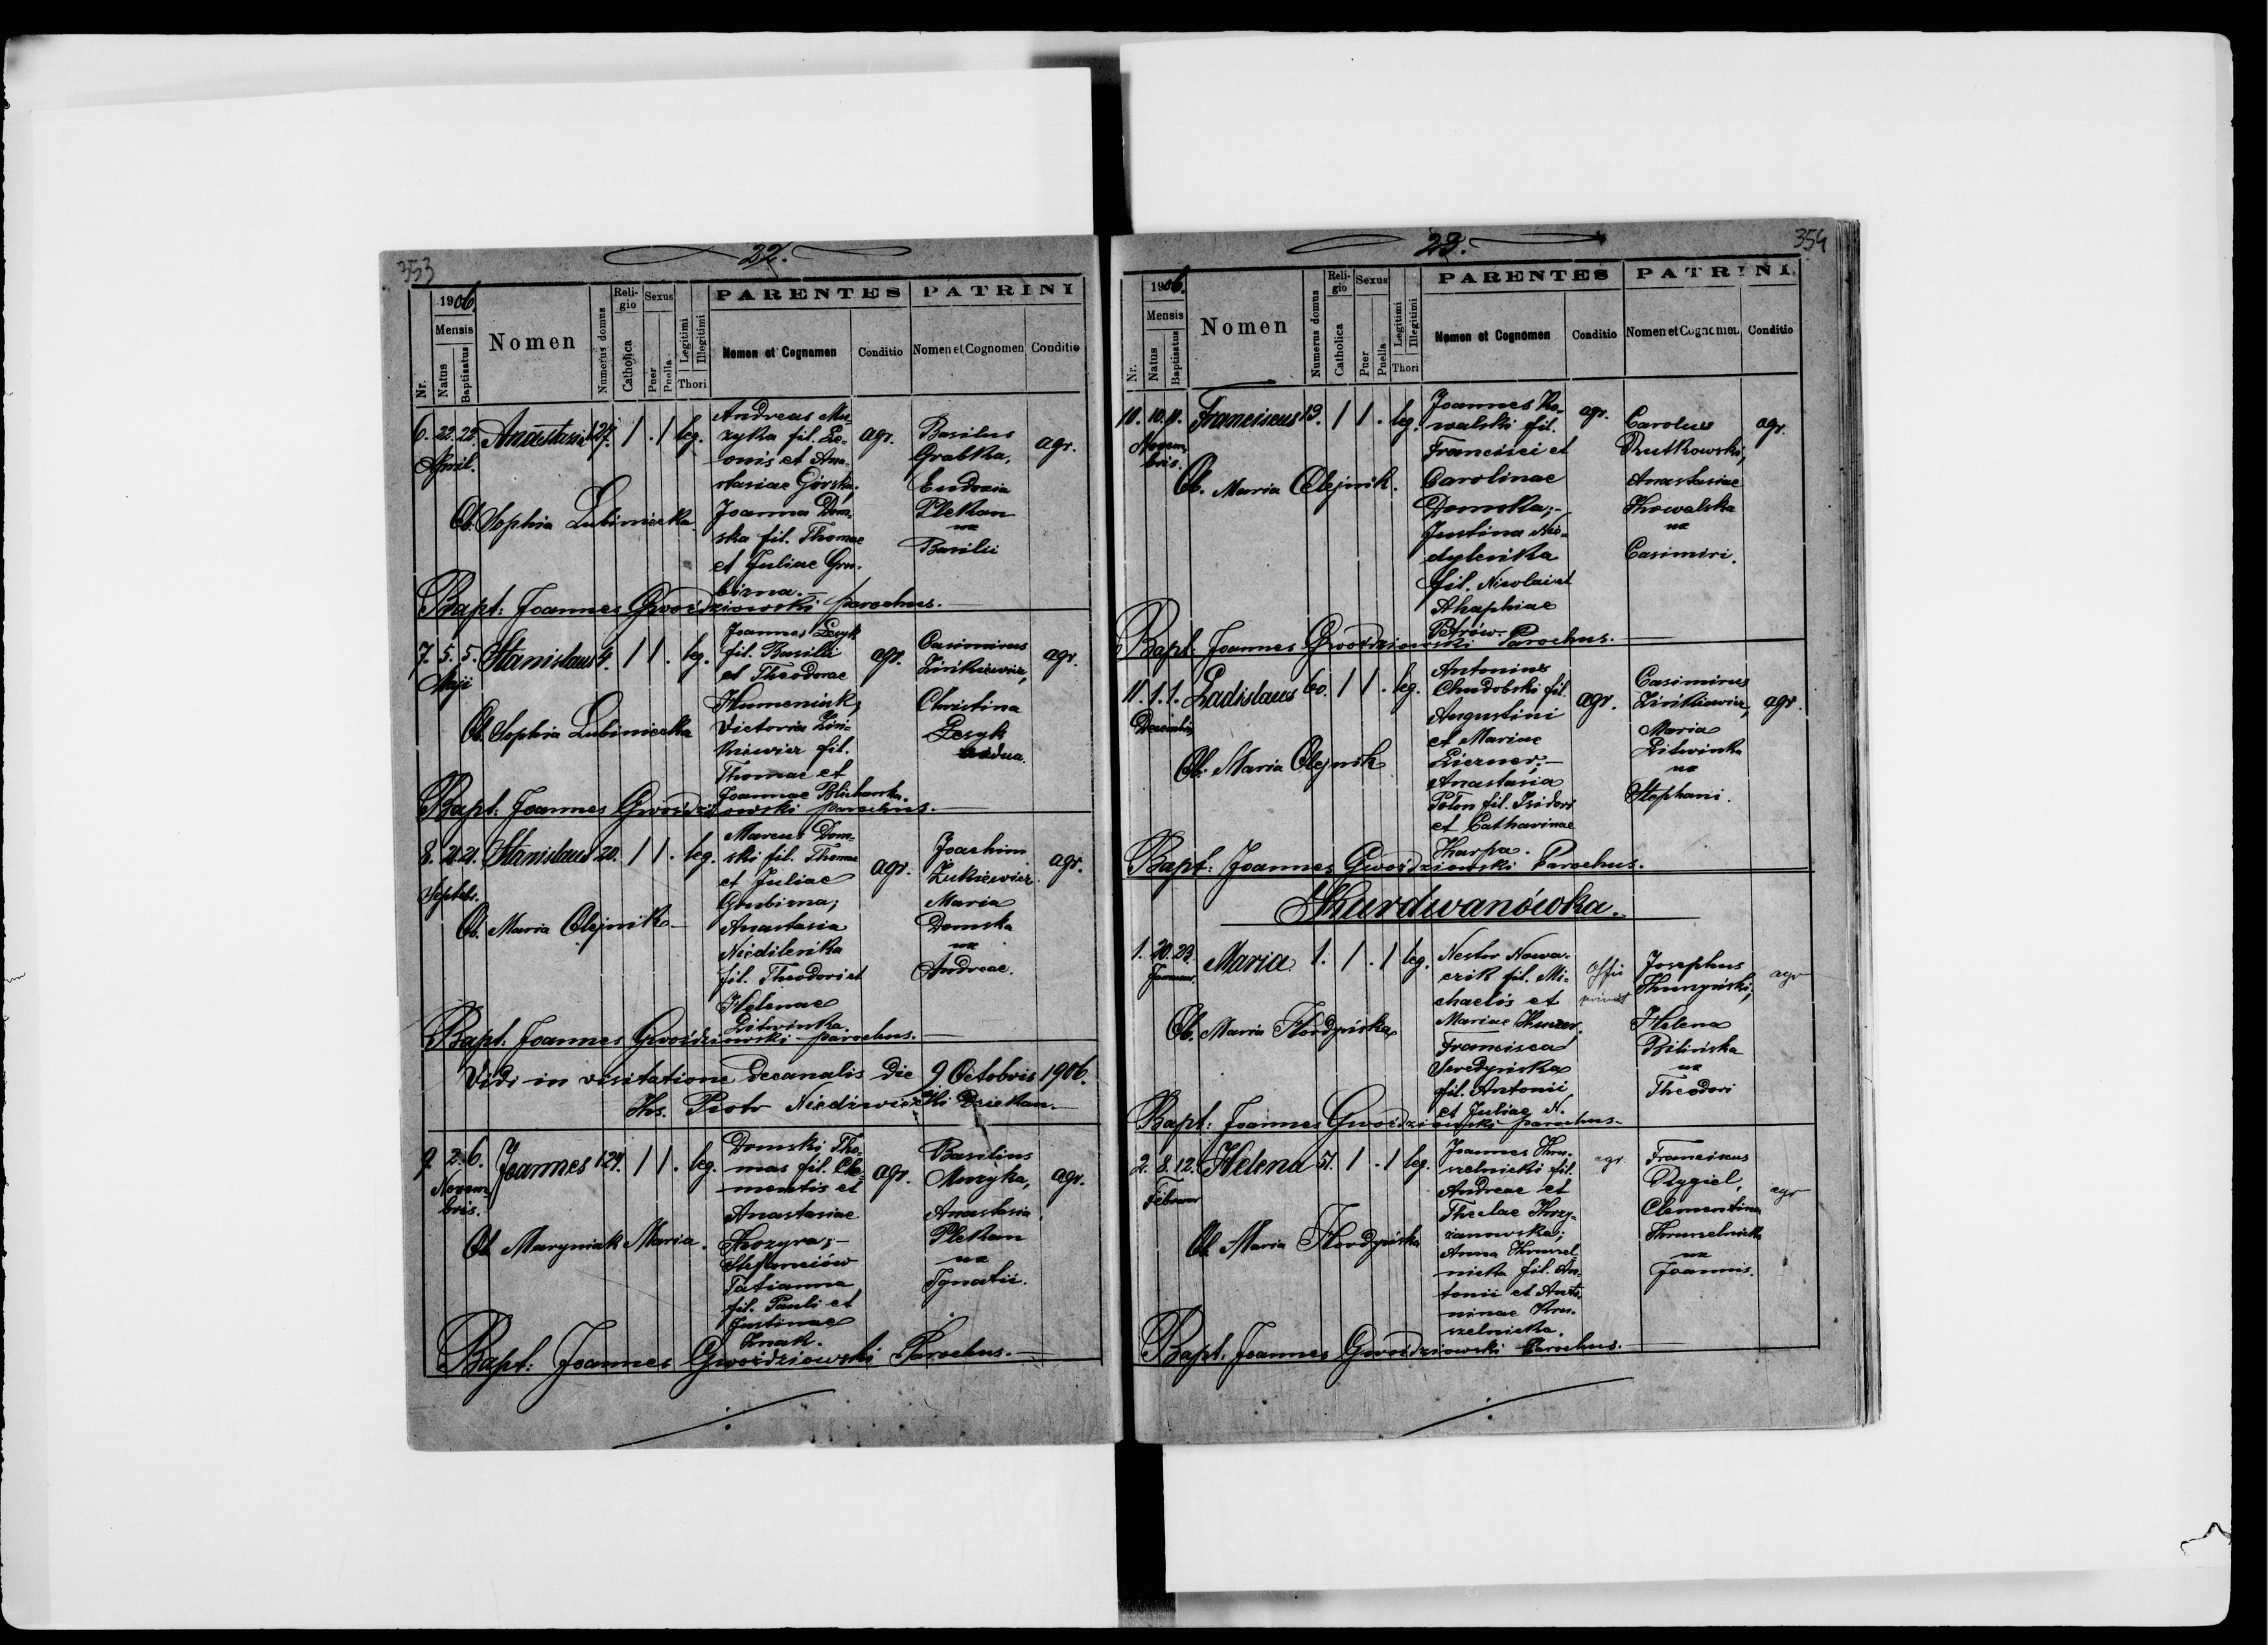 353
22.
1906.
Mensis
Nr.
Natus
Baptisatus
Nomen
Numerus domus
Religio
Catholica
Sexus
Puer
Puella
Legitimi
Illegitimi
Thori
PARENTES
Nomen et Cognomen
Conditio
PATRINI
Nomen et Cognomen
Conditio
6. 22. 22. Anastasia 127. 1 . 1 leg.
April.
Ob. Sophia Lubiniecka
Andreas Mu-
zyka fil. Le-
onis et Ana-
stasiae Górska.
Joanna Dom-
ska fil. Thomae
et Juliae Gru-
bizna.-
agr.
Basilius
Grabka,
Eudoxia
Plekan
ux
Basilii
agr.
Bapt: Joannes Gwoździowski parochus.
7. 5. 5. Stanislaus 4. 1 1 . leg.
Maji
Ob. Sophia Lubiniecka
Joannes Lesyk
fil. Basilii
et Theodorae
Humeniuk,
Victoria Zin-
kiewicz fil.
Thomae et
Joannae
agr.
Casimirus
Zinkiewicz,
Christina
Lesyk
vidua.
agr.
Bapt: Joannes Gwoździowski parochus.
8. 21. 21. Stanislaus 20. 1 1 . leg.
Septbr.
Ob. Maria Olejnik
Marcus Dom-
ski fil. Thomae
et Juliae
Grubizna;
Anastasia
Niedilenka
fil. Theodori et
Helenae
Litwinka.
agr.
Joachim
Zukiewicz
Maria
Domska
ux
Andreae.
agr.
Bapt. Joannes Gwoździowski parochus.
Vidi in visitatione decanalis die 9 Octobris 1906.
Ks. Piotr Niedźwiecki Dziekan.
9. 2. 6. Joannes 129. 1 1 . leg.
Novem-
bris.
Ob Maryniak Maria.
Domski Tho-
mas fil. Cle-
mentis et
Anastasiae
Kozyra;-
Stefanciów
Tatianna
fil. Pauli et
Justinae
Hnak.
agr.
Basilius
Muzyka,
Anastasia
Plekan
ux
Ignatii.
agr.
Bapt: Joannes Gwoździowski Parochus.
354
23.
1906.
Mensis
Nr.
Natus
Baptisatus
Nomen
Numerus domus
Religio
Catholica
Sexus
Puer
Puella
Legitimi
Illegitimi
Thori
PARENTES
Nomen et Cognomen
Conditio
PATRINI
Nomen et Cognomen
Conditio
10. 10. 11. Franciscus 13. 1 1 . leg.
Novem-
bris.
Ob. Maria Olejnik.
Joannes Ko-
walski fil.
Francisci et
Carolinae
Domska;-
Justina Nie-
dylenka
fil. Nicolai et
Ahaphiae
Petrów.
agr.
Carolus
Rutkowski,
Anastasiae
Kowalska
ux
Casimiri.
agr.
Bapt. Joannes Gwoździowski Parochus.
11. 1. 1. Ladislaus 60. 1 1 . leg.
Decembris
Ob. Maria Olejnik
Antonius
Chudobski fil.
Augustini
et Mariae
Lierner;-
Anastasia
Poton fil. Isidori
et Catharinae
Kharpa.
agr.
Casimirus
Zinkiewicz,
Maria
Litwinka
ux
Stephani.
agr.
Bapt: Joannes Gwoździowski Parochus.
Kurdwanówka.
1. 20. 23. Maria 1. 1 . 1 leg.
Januar.
Ob. Maria
Nestor Nowa-
czik fil. Mi-
chaelis et
Mariae
Francisca
Seredyńska
fil. Antonii
et Juliae N.
Josephus
Helena
Bilińska
ux
Theodori
agr
Bapt: Joannes Gwoździowski parochus.
2. 8. 12. Helena 51. 1 . 1 leg.
Februar
Ob. Maria
Joannes Kru-
szelnicki fil.
Andreae et
Theclae Krzy-
zanowska;
Anna Kruszel-
nicka fil. An-
tonii et Anto-
ninae Kru-
szelnicka.
agr.
Franciscus
Rygiel,
Clementina
Kruszelnicka
ux
Joannis.
agr
Bapt. Joannes Gwoździowski Parochus.